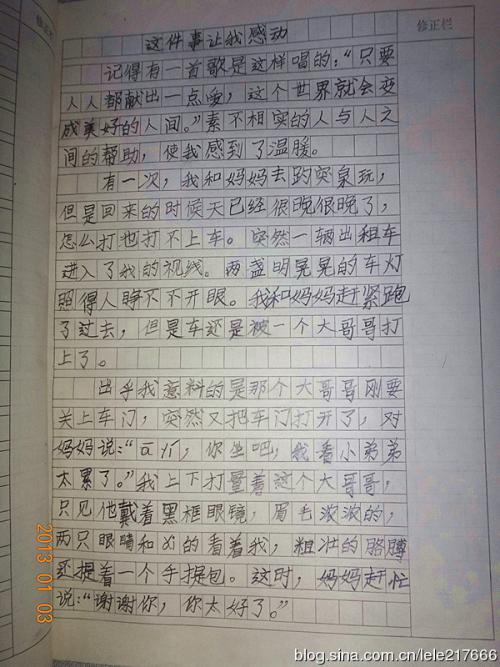 修正栏
这件事让我感动
记得有一首歌是这样唱的:“只要
人人都献出一点爱,这个世界就会变
成美好的人间。”素不相实的人与人之
间的帮助,使我感到了温暖。
有一次,我和妈妈去趵突泉玩,
但是回来的时候天已经很晚很晚了,
怎么打也打不上车。突然一辆出租车
进入了我的视线。两盏明晃晃的车灯
照得人睁不开眼。我和妈妈赶紧跑
了过去,但是车还是被一个大哥哥打
上了。
出乎我意料的是那个大哥哥刚要
关上车门,突然又把车门打开了,对
妈妈说:“ā yí,你坐吧,我看小弟弟
太累了。”我上下打量着这个大哥哥,
只见他戴着黑框眼镜,眉毛浓浓的,
两只眼睛和ǎi的看着我,粗壮的胳膊
还提着一个手提包。这时,妈妈赶忙
说:“谢谢你,你太好了。”
2013 01 03
blog.sina.com.cn/lele217666